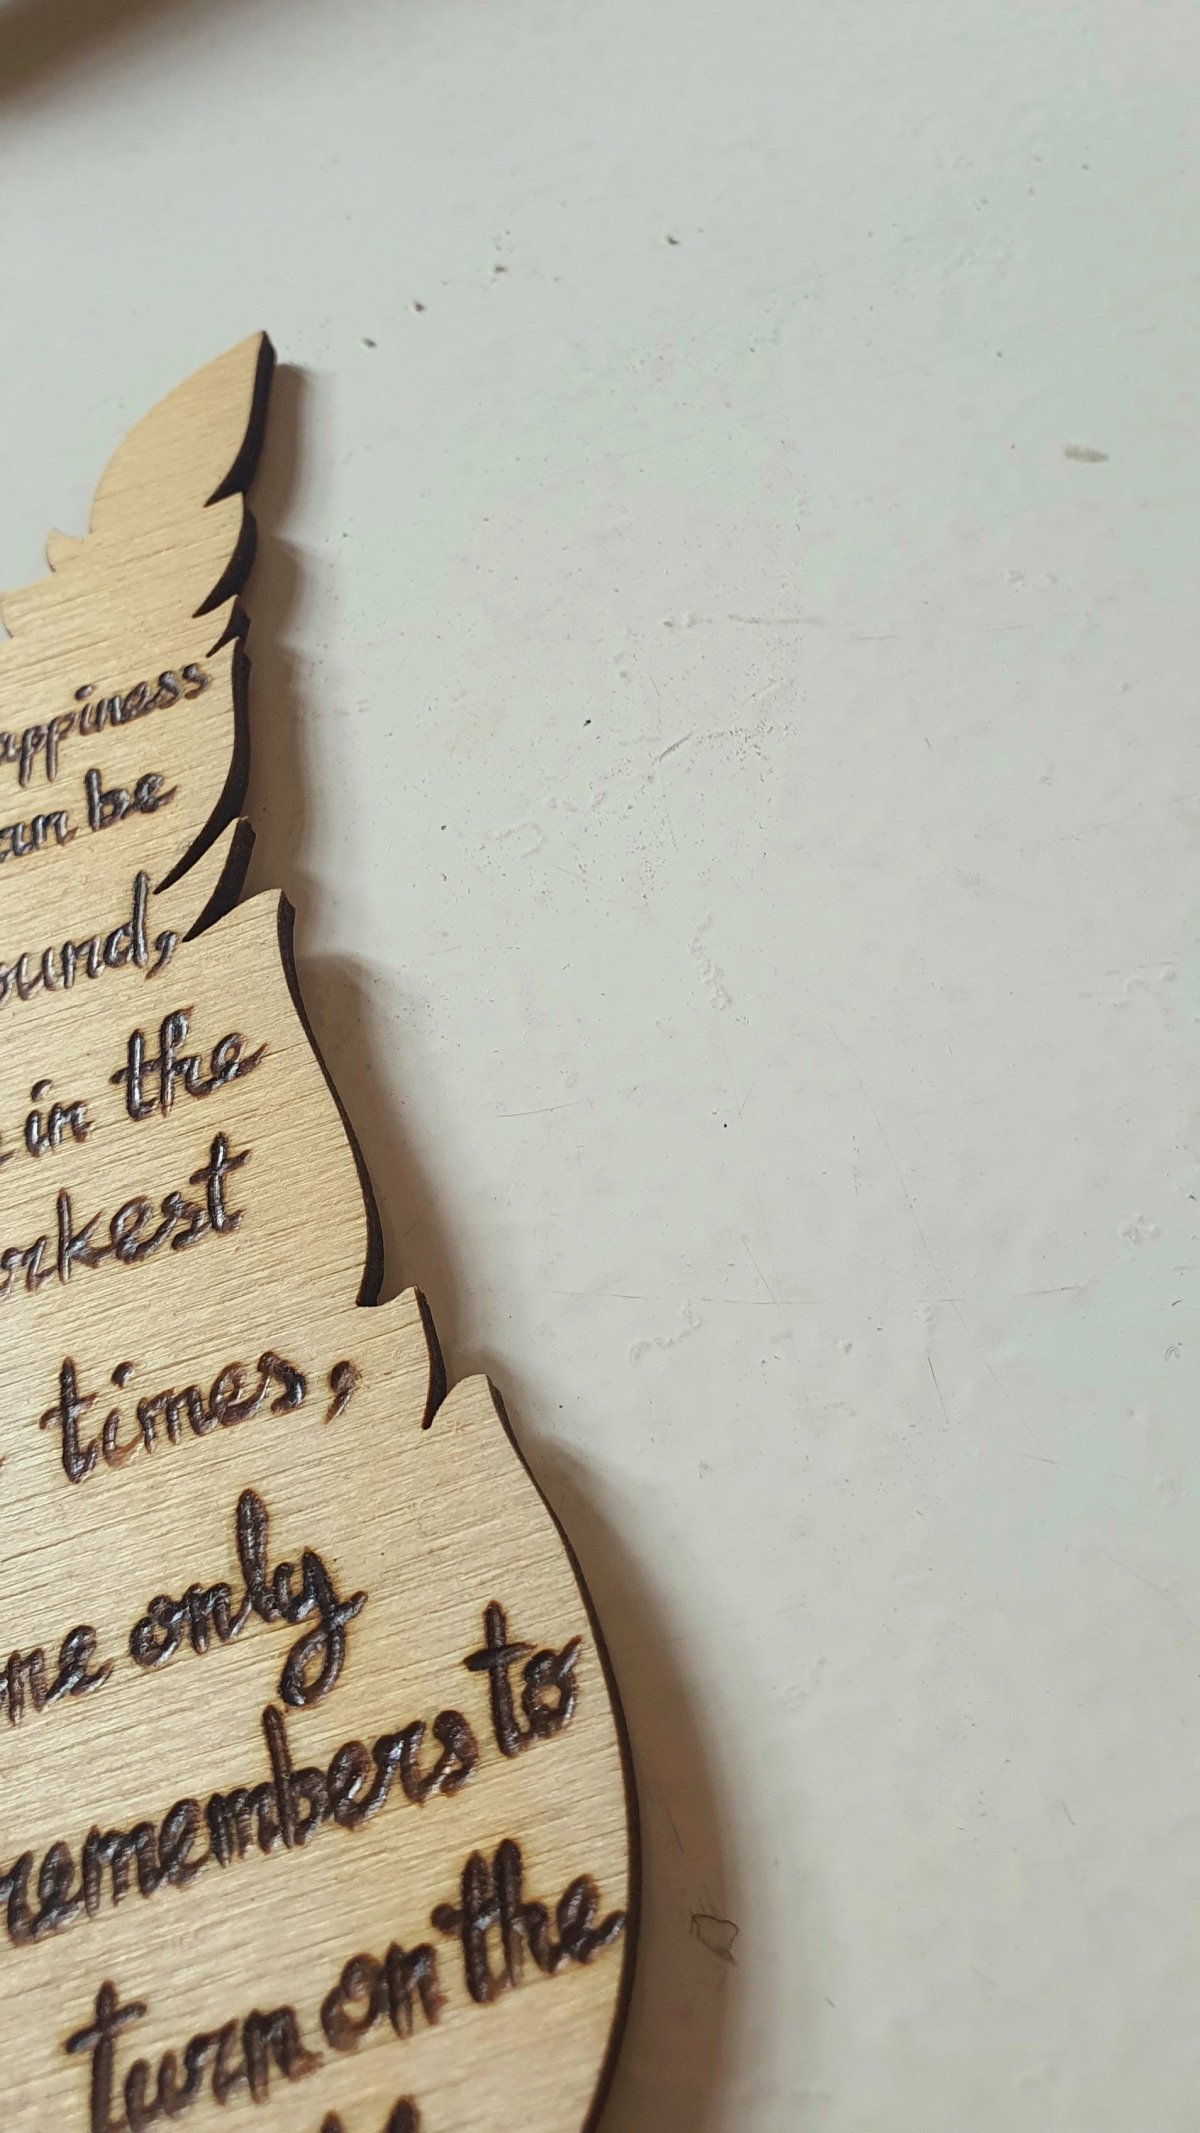 appiness
an be
ound,
in the
rkest
times,
ne only
remembers to
turn on the